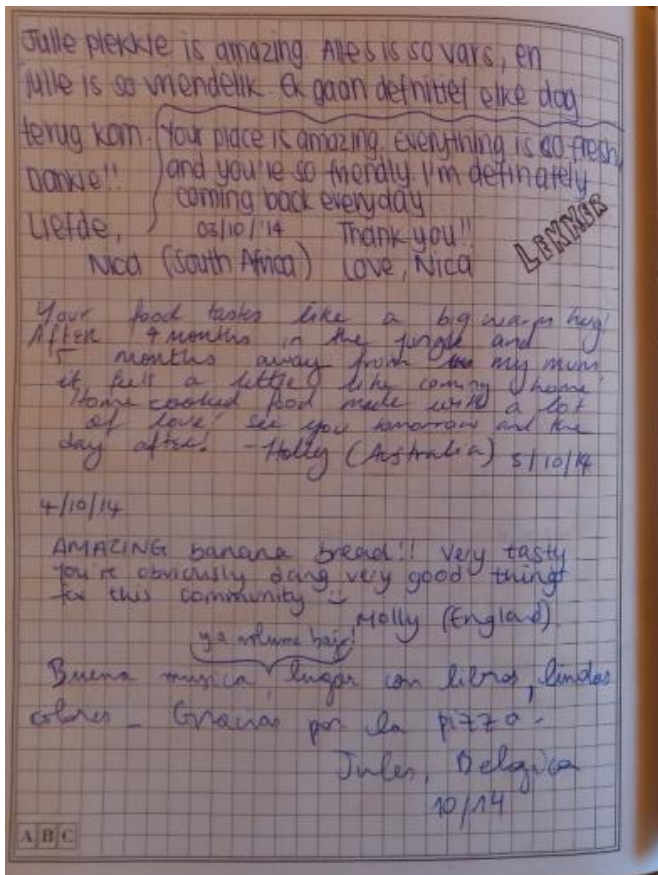 Julle plekkie is amazing. Alles is so vars, en
julle is so vriendelik. Ek gaan definitief elke dag
terug kom.
Dankie!!
Liefde,
Nica (South Africa)
Your place is amazing. Everything is so fresh
and you're so friendly. I'm definately
coming back everyday
03/10/'14 Thank you!!
Love, Nica
LEKKER
Your food tastes like a big warm hug!
After 4 months in the jungle and
5 months away from my mum
it feels a little like coming home!
Home cooked food made with a lot
of love! See you tomorrow and the
day after! - Holly (Australia) 5/10/14
4/10/14
AMAZING banana bread!! Very tasty
you're obviously doing very good things
for this community :)
Molly (England).
y a volume bajo!
Buena musica, lugar con libros, lindos
colores - Gracias por la pizza -
Jules, Belgica
10/14
ABC